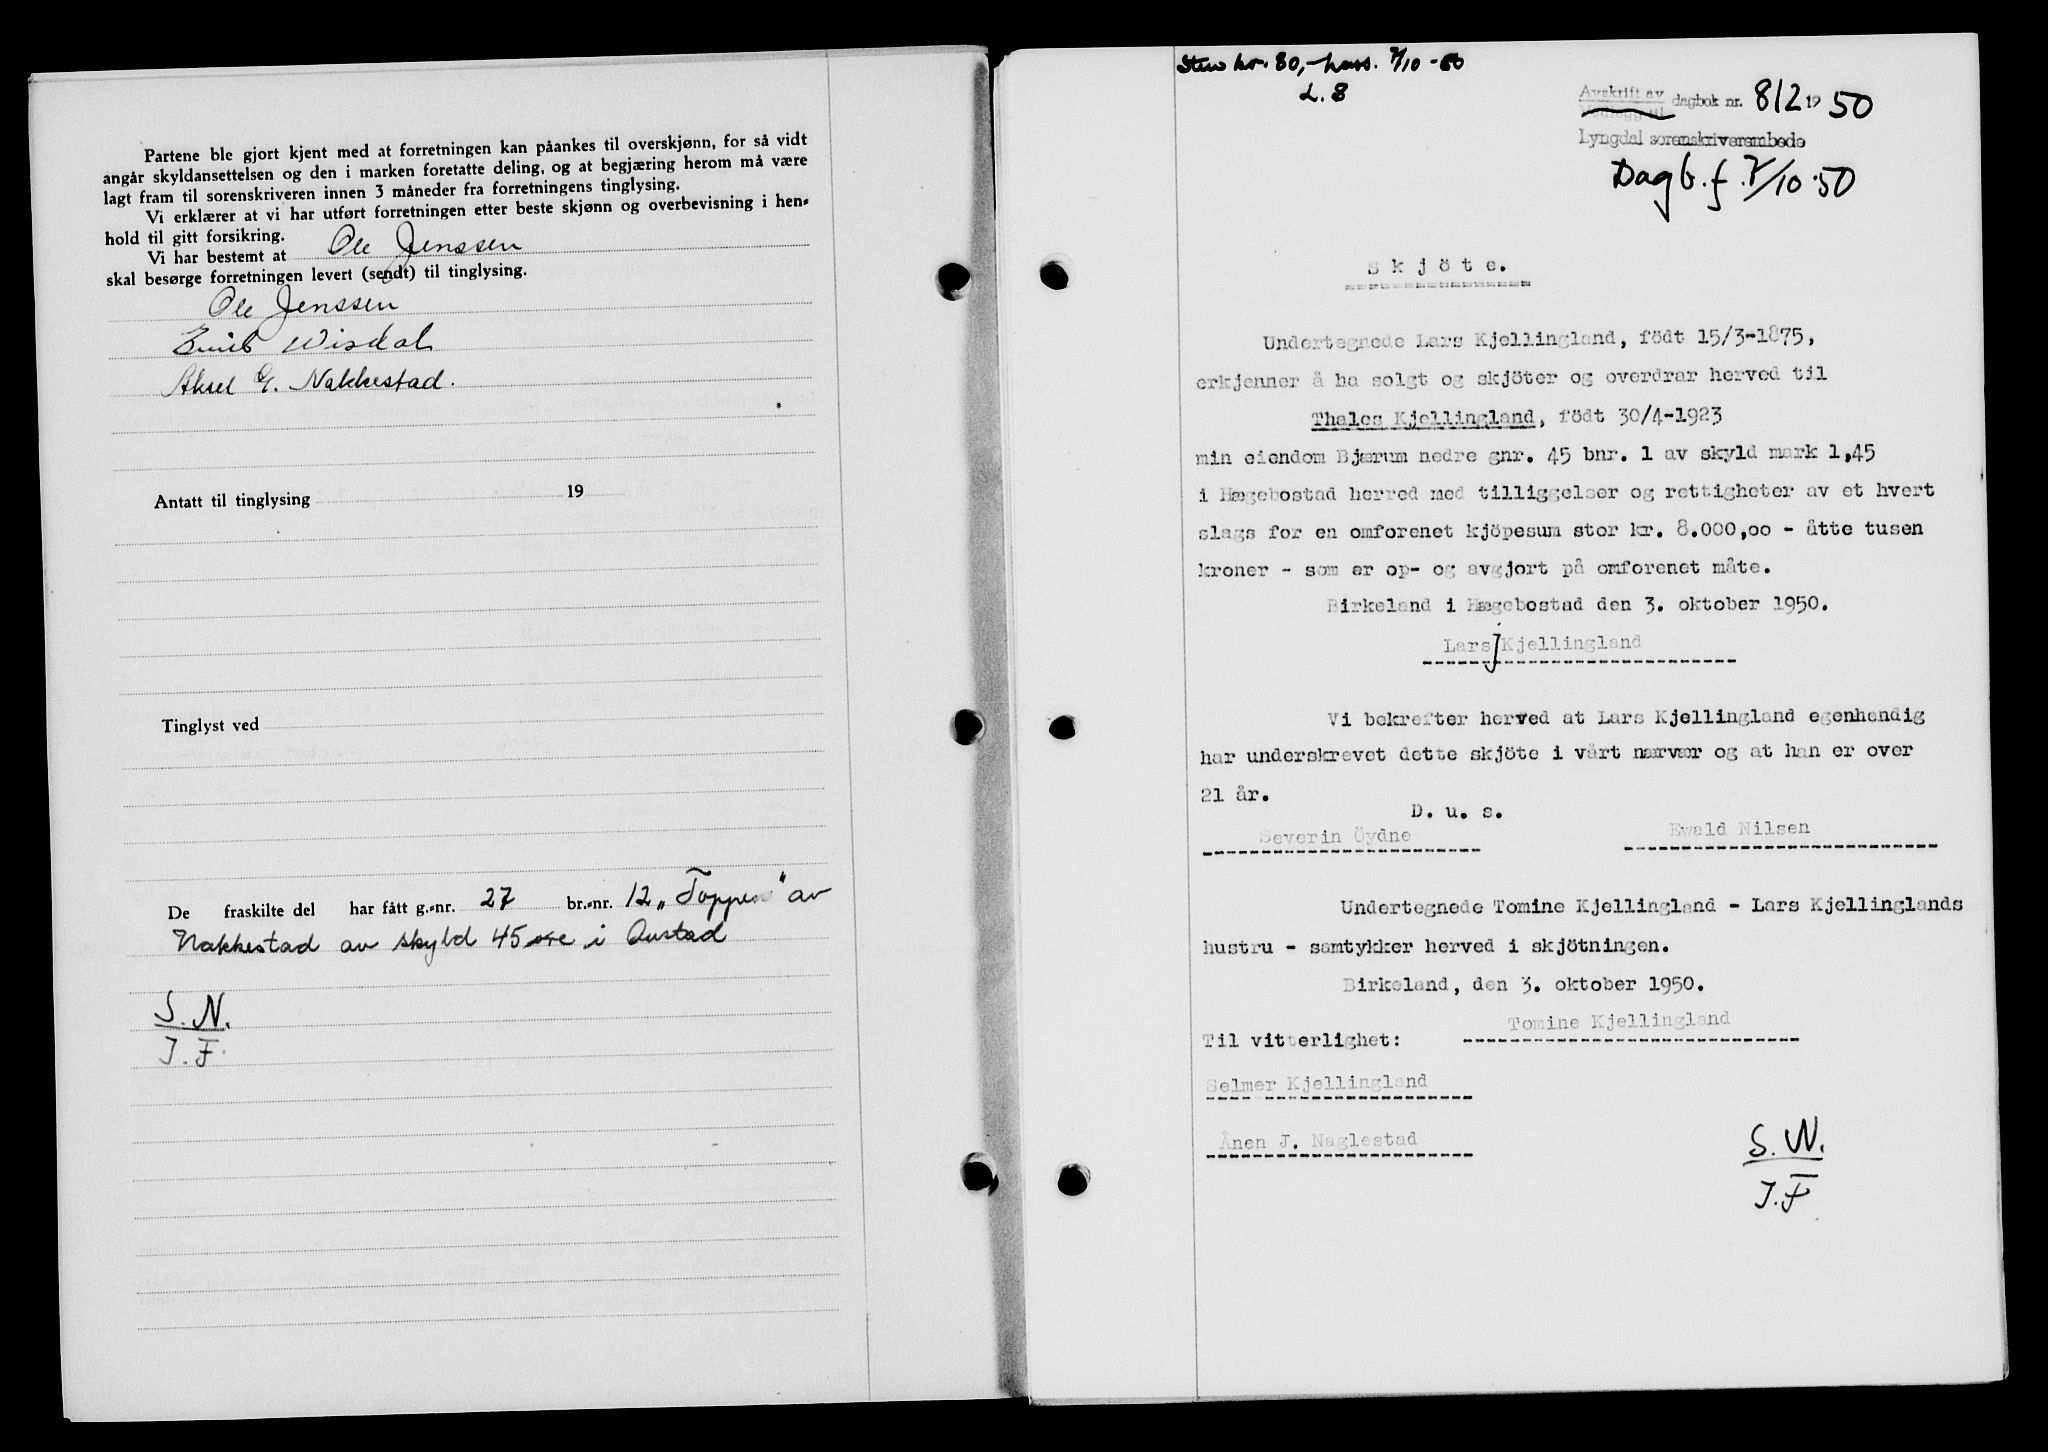 Partene ble gjort kjent med at forretningen kan påankes til overskjønn, for så vidt
angår skyldansettelsen og den i marken foretatte deling, og at begjæring herom må være
lagt fram til sorenskriveren innen 3 måneder fra forretningens tinglysing.
Vi erklærer at vi har utført forretningen etter beste skjønn og overbevisning i hen-
hold til gitt forsikring.
Vi har bestemt at Ole Jenssen
skal besørge forretningen levert (sendt) til tinglysing.
Ole Jenssen
Wisdal
Aksel E. Nakkestad.
Antatt til tinglysing 19
Tinglyst ved
De fraskilte del har fått g.-nr. 27 br.-nr. 12 „Toppen" av
Nakkestad av skyld 45 øre i Austad
S. N.
J. F.
kr. 80,- kass. 7/10-50
L. S
Avskrift av dagbok nr. 812 19 50
Vedlegg til
Lyngdal sorenskriverembede
Dagb. f. 7/10-50
Skjöte.
Undertegnede Lars Kjellingland, födt 15/3-1875,
erkjenner å ha solgt og skjöter og overdrar herved til
Thales Kjellingland, födt 30/4-1923
min eiendom Bjærum nedre gnr. 45 bnr. 1 av skyld mark 1,45
i Hægebostad herred med tilliggelser og rettigheter av et hvert
slags for en omforenet kjöpesum stor kr. 8.000,oo - åtte tusen
kroner - som er op- og avgjort på omforenet måte.
Birkeland i Hægebostad den 3. oktober 1950.
Lars J Kjellingland
Vi bekrefter herved at Lars Kjellingland egenhendig
har underskrevet dette skjöte i vårt nærvær og at han er over
21 år.
D. u. s.
Severin Öydne Ewald Nilsen
Undertegnede Tomine Kjellingland - Lars Kjellinglands
hustru - samtykker herved i skjötningen.
Birkeland, den 3. oktober 1950.
Tomine Kjellingland
Til vitterlighet:
Selmer Kjellingland
Ånen J. Naglestad
S. N.
J. F